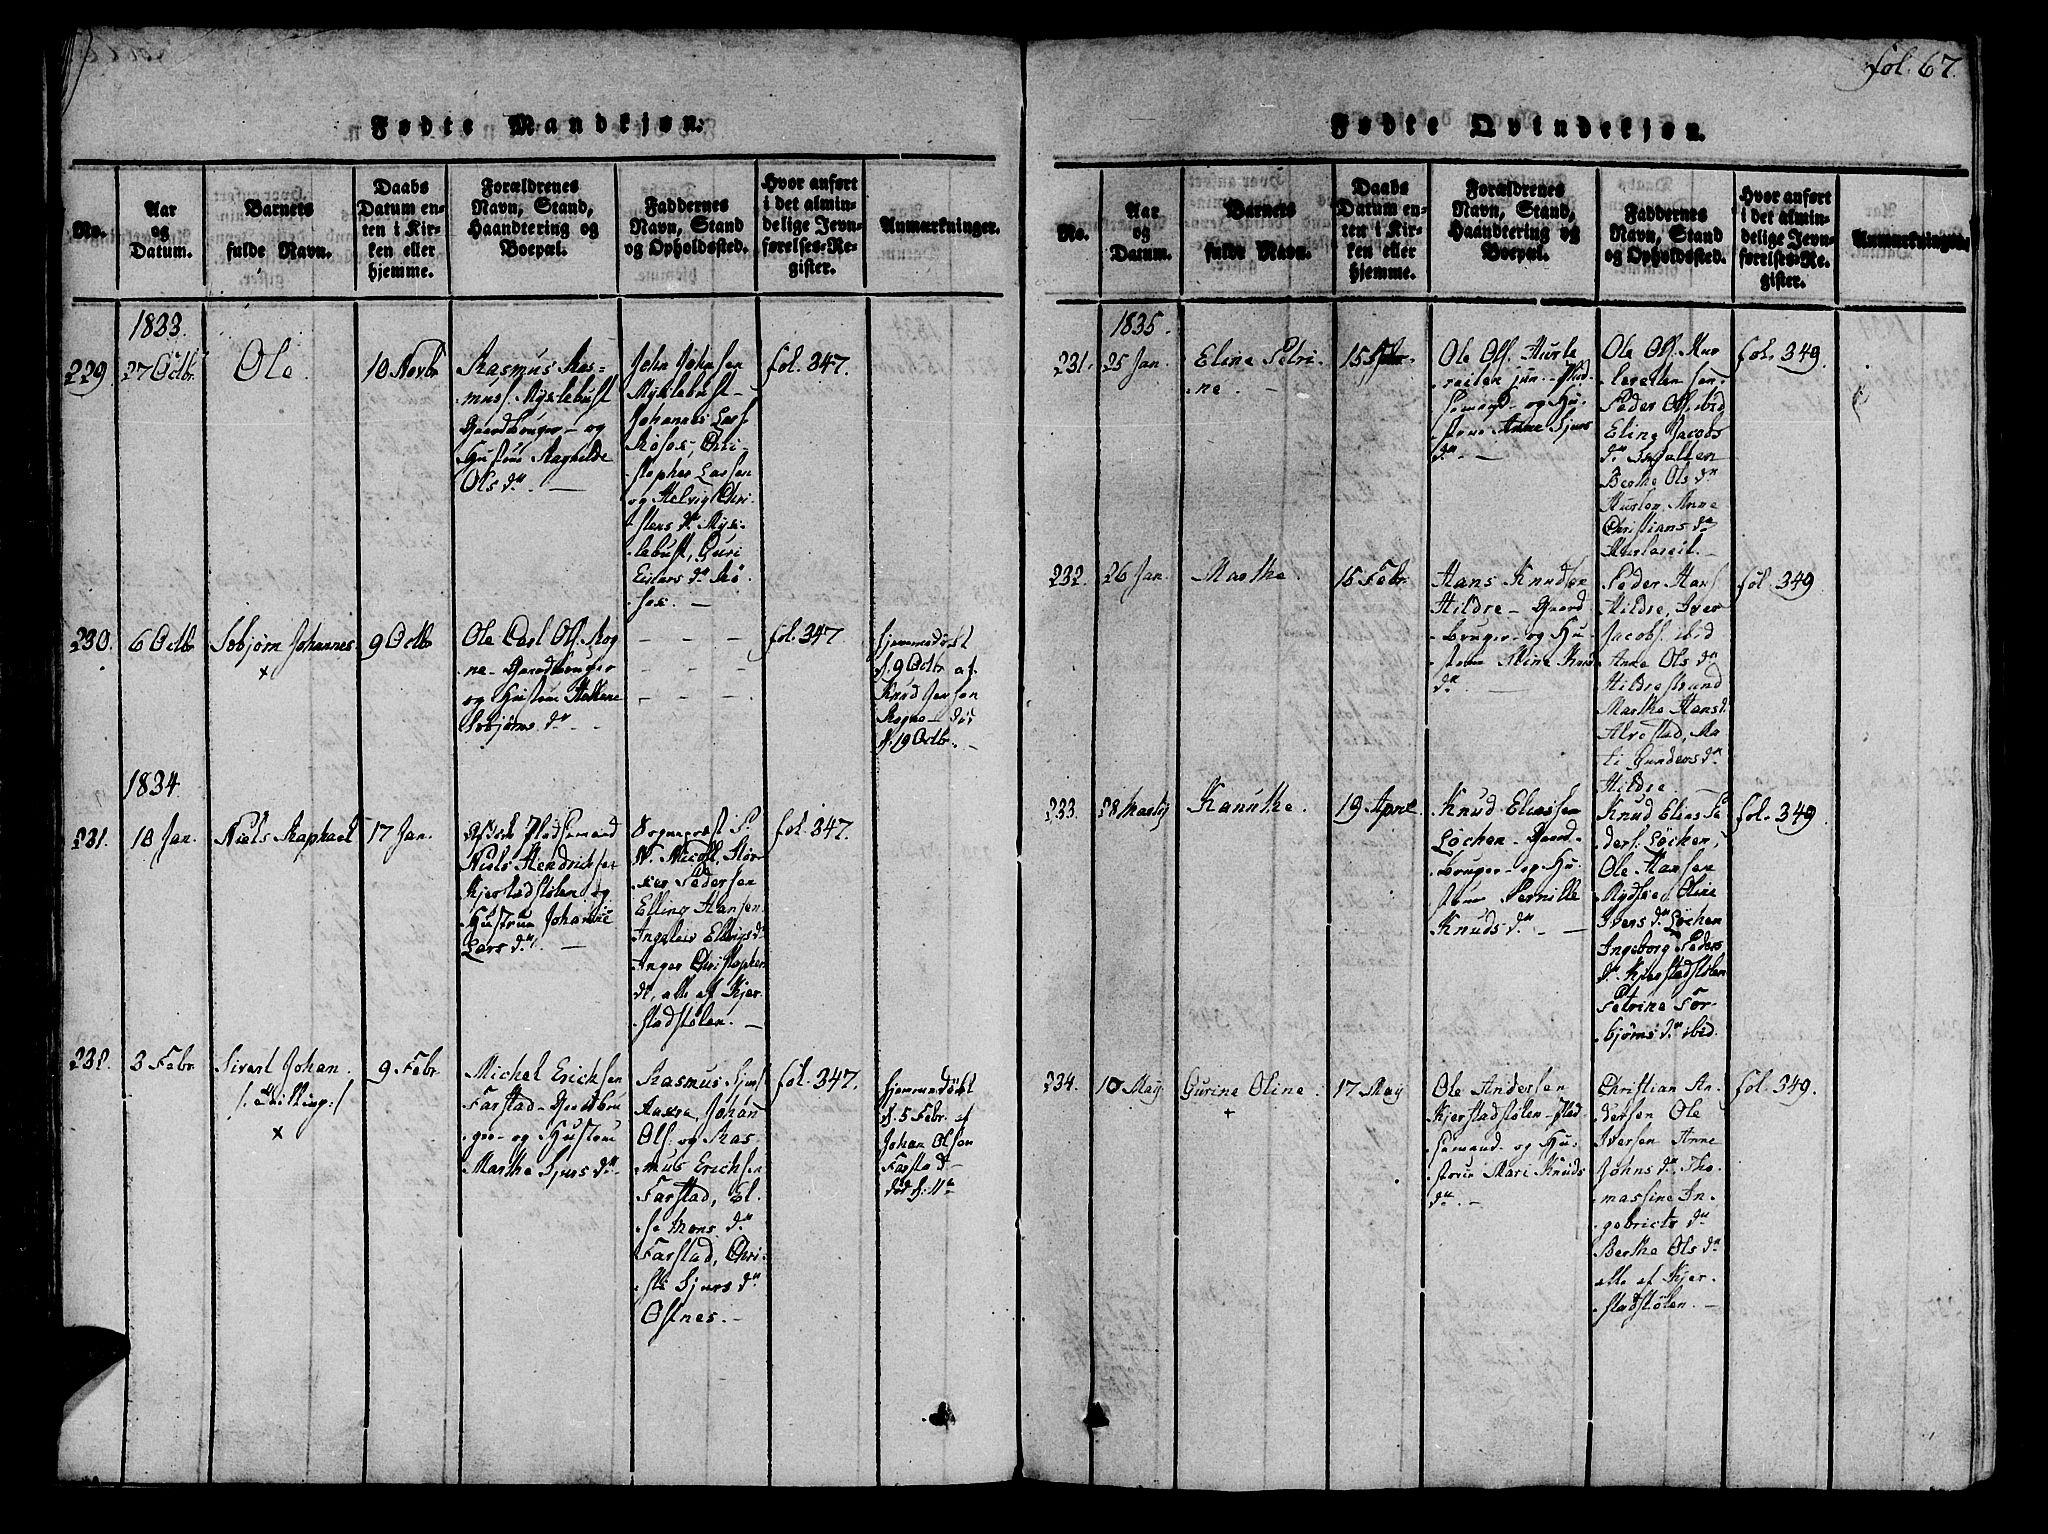 fol. 67.
Fødte Mandkjøn.
No.
Aar
og
Datum.
Barnets
fulde Navn.
Daabs
Datum en-
ten i Kir-
ken eller
hjemme.
Forældrenes
Navn, Stand,
Haandtering og
Boepæl.
Faddernes
Navn, Stand
og Opholdssted.
Hvor anført
i det almin-
delige Jevn-
førelses-Re-
gister.
Anmærkninger.
1833.
229
27 Octbr
Ole
10 Novbr
Rasmus Ras-
mus. Myklebust
Gaardbruger - og
Hustrue Ragnilde
Ols dr. -
John Johnsen
Myklebust -
Johannes Lars.
Røsos, Chri-
stopher Larsen
og Helvig Chri-
stens dr. Myk-
lebust, Guri
Eilers dr. Rø-
sos. -
fol. 347.
230.
6 Octbr
Sobjørn Johannes
+
9 Octbr
Ole Carl Ols. Rog-
ne - Gaardbruger
og Hustrue
Sobjørns dr. -
- - -
- - -
fol. 347
Hjemmedøbt
d. 9 Octbr af
Knud Jensen
Rogne - død
d. 19 Octbr. -
1834
231.
10 Jan.
Niels Raphael
17 Jan.
Pladsemand
Niels Hendriksen
Kjerstadstølen og
Hustrue Johanne
Lars dr. -
Sognepræst P.
W. Nicols.
Pedersen
Elling Hansen
Ingeleiv Ellings d.
Inger Christopher
dr, alle af Kjer-
stadstølen. -
fol. 347.
232.
3 Febr.
Sivert Johan.
/: Tvilling :/
+
9 Febr.
Michel Erichsen
Farstad - Gaardbru-
ger - og Hustrue
Marthe Sjurs dr. -
Rasmus Sjurs.
Johan
Ols. og Ras-
mus Erichsen
Farstad, El-
se Mons dr.
Farstad, Chri-
sti Sjurs dr.
Ostnes. -
fol. 347.
Hjemmedøbt
d. 5 Febr. af
Johan Olsen
Farstad -
død d. 11te
Fødte Qvindekjøn.
No.
Aar
og
Datum.
Barnets
fulde Navn.
Daabs
Datum en-
ten i Kir-
ken eller
hjemme.
Forældrenes
Navn, Stand,
Haandtering og
Boepæl.
Faddernes
Navn, Stand
og Opholdssted.
Hvor anført
i det almin-
delige Jevn-
førelses-Re-
gister.
Anmærkninger.
1835.
231.
25 Jan.
Eline Petri-
ne. -
15 Febr
Ole Ols. Hurle
reiten jun. - Plad-
semand - og Hu-
strue Anne Sjurs
dr. -
Ole Ols. Hur-
lereiten sen.
Peder Ols. ibid
Eline Jacobs
dr.
Berthe Ols dr
Anne
Christians dr
Hurlereit. -
fol. 349.
232.
26 Jan.
Marthe.
15 Febr.
Hans Knudsen
Hildre - Gaard-
bruger - og Hu-
strue Knuds
dr. -
Peder Hans.
Hildre, Iver
Jacobs. ibid
Anne Ols dr
Hildrestrand
Marthe Hans d.
Alvestad, Ma-
ti Gunders dr
Hildre. -
fol 349.
233.
28 Martij
Kanuthe.
19 April
Knud Eliassen
Løchen - Gaard-
bruger - og Hu-
strue Pernille
Knuds dr. -
Knud Elias Pe-
ders. Løchen,
Ole Hansen
Oline
Ivers dr. Løchen
Ingeborg Peders
dr. Kjerstadstølen
Petrine Tor-
bjørns dr. ibid
fol. 349.
234.
10 May
Gurine Oline.
+
17 May
Ole Andersen
Kjerstadstølen - Plad-
semand og Hu-
strue Mari Knuds
dr. -
Christian An-
dersen Ole
Iversen Anne
Johns dr. Tho-
massine In-
gebricts dr.
Berthe Ols dr.
alle af Kjer-
stadstølen. -
fol. 349.